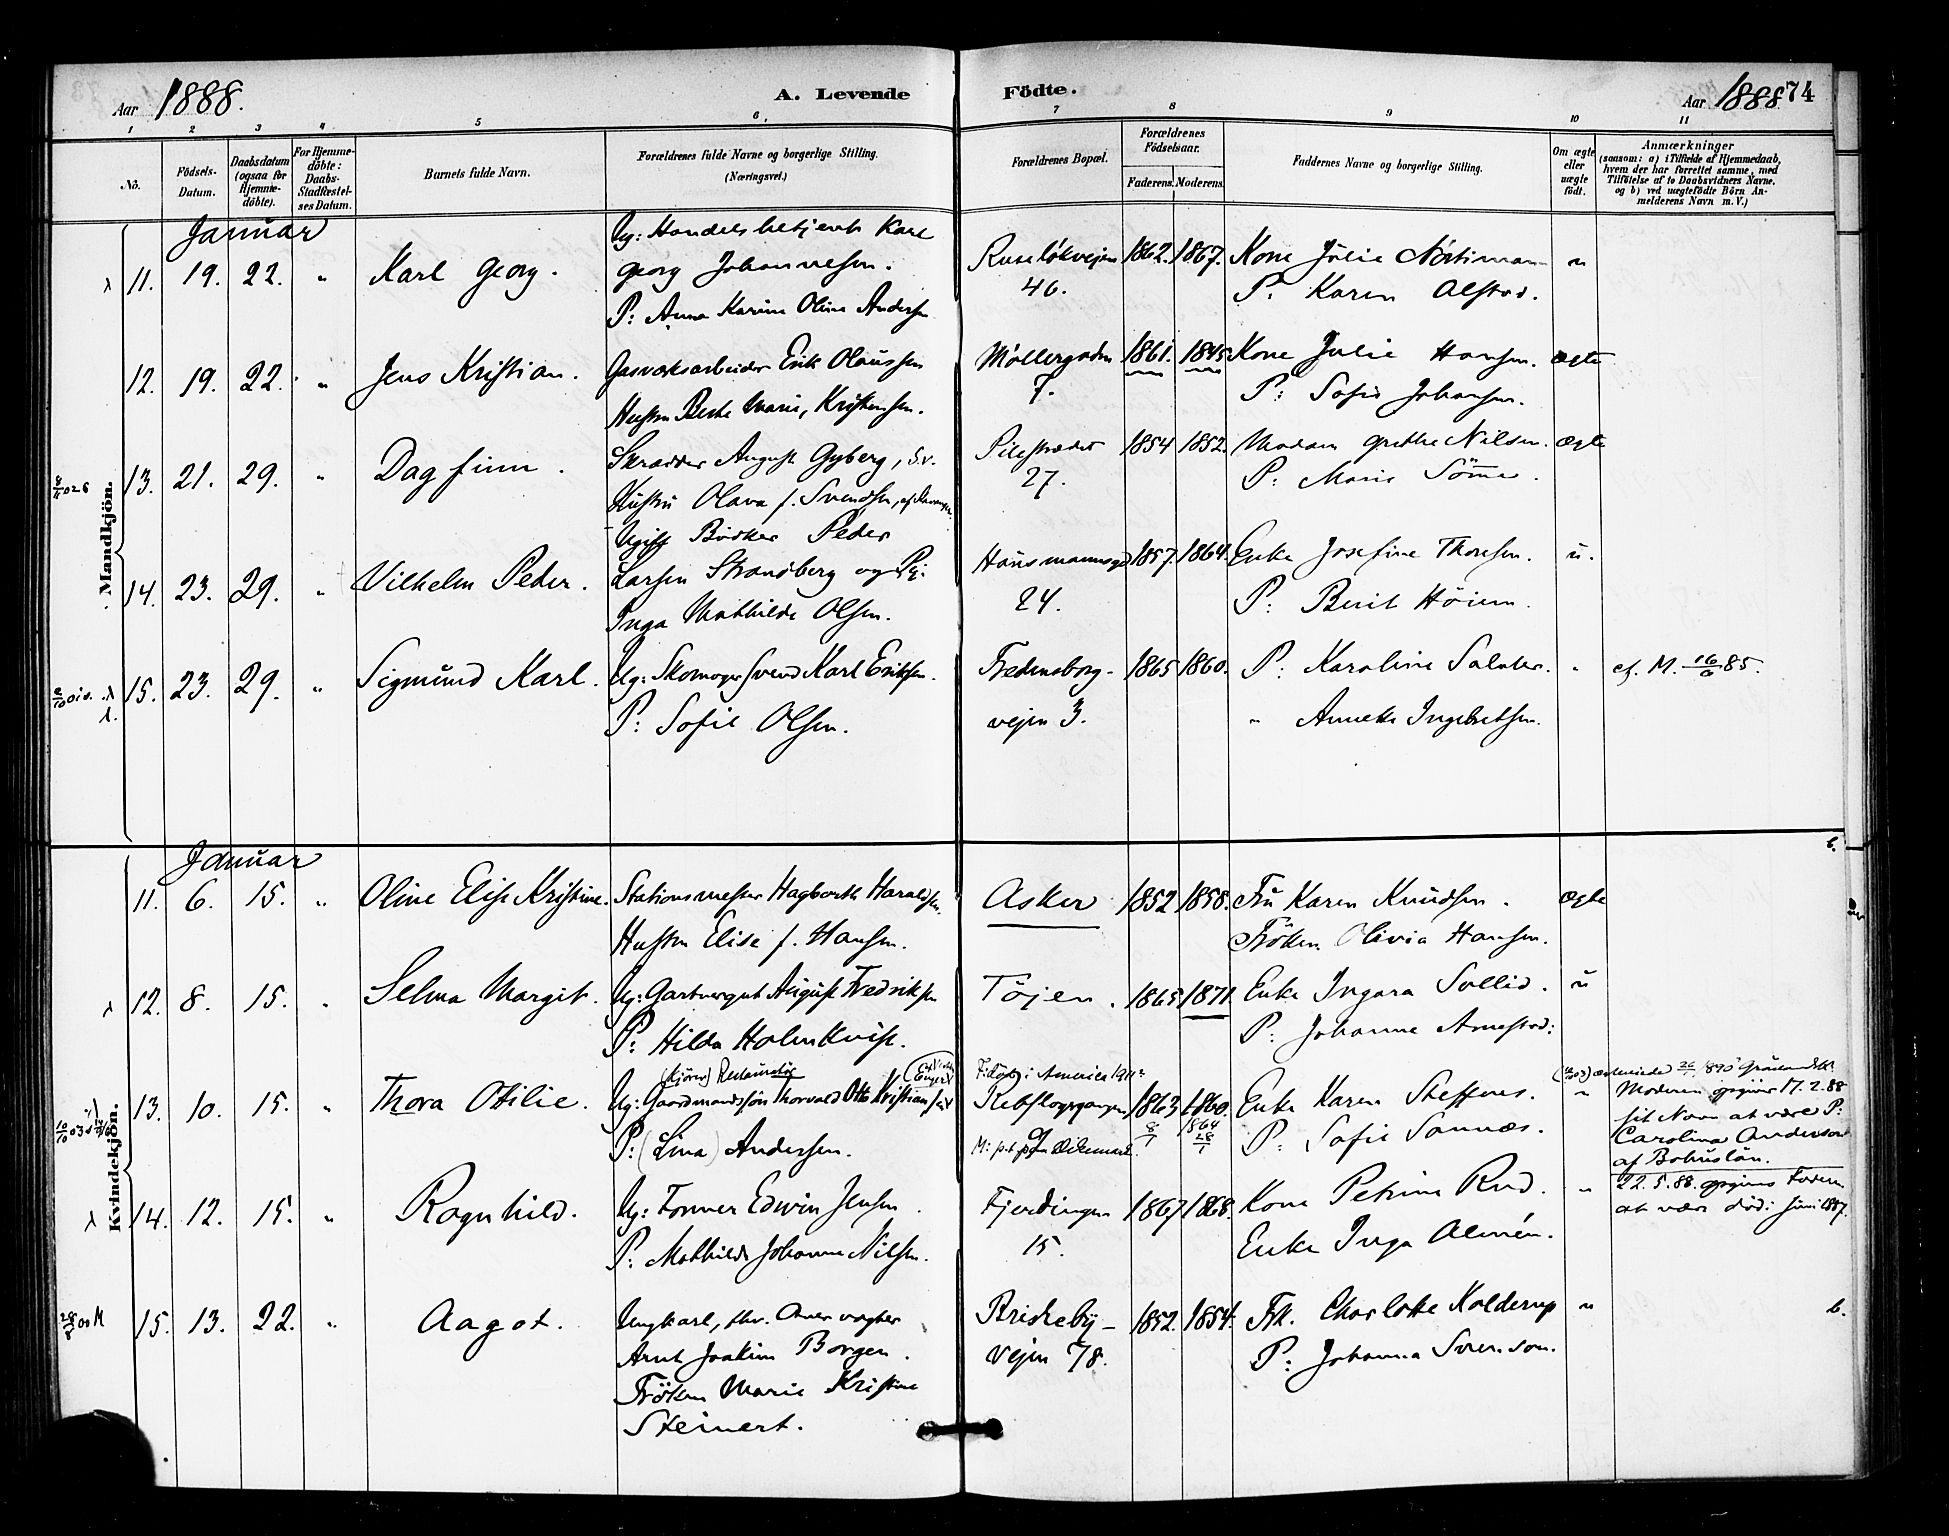 Aar 1888.
A. Levende
Födte.
Aar 1888 74
1 2 3 4 5 6 7 8 9 10 11
No.
Födsels-Datum.
Daabsdatum (ogsaa for Hjemme-döbte).
For Hjemme-döbte: Daabs-Stadfæstel-ses Datum.
Barnets fulde Navn.
Forældrenes fulde Navne og borgerlige Stilling. (Næringsvei.)
Forældrenes Bopæl.
Forældrenes Födselsaar.
Faderens. Moderens.
Faddernes Navne og borgerlige Stilling.
Om ægte eller uægte födt.
Anmærkninger
(saasom: a) i Tilfælde af Hjemmedaab, hvem der har forrettet samme, med Tilföielse af to Daabsvidners Navne, og b) ved uægtefödte Börn Anmelderens Navn m. V.)
Mandkjön.
Januar
11. 19. 22. " Karl Georg. Ug: Handelsbetjent Karl
Georg Johannesen.
P: Anna Karine Oline Andersen
Ruseløkvejen 46. 1862. 1867. Kone Julie
P: Karen Alstad.
u
12. 19. 22. " Jens Kristian. Gasværksarbeider Erik Olaussen
Hustru Marie, Kristensen.
Møllergaden 7. 1861. 1845 Kone Julie Hansen. ægte
P: Sofie Johansen.
13. 21. 29. " Dagfinn. Skrædder August Gyberg, s.v.
Hustru Olava f. Svendsen,
Pilestrædet 27. 1854 1852. Madam Grethe Nilsen. ægte
P: Marie Sömme.
14. 23. 29. " Vilhelm Peder. Ugift Bödker Peder
Larsen Strandberg og Pig:
Inga Mathilde Olsen.
Hausmannsgd 24. 1857. 1864. Enke Josefine Thoresen. u.
P: Berit Höiem.
15. 23. 29. " Sigmund Karl. Ug: Skomager Svend Karl Eriksen.
P: Sofie Olsen.
Fredensborg-vejen 3. 1865 1860. P: Karoline Salater. " cf. M. 16/6 85.
" Annette Ingebretsen.
Kvindekjön.
Januar
11. 6. 15. " Oline Elise Kristine. Stationsmester Hagbarth Haraldsen.
Hustru Elise f. Hansen.
Asker 1852 1858. Fru Karen Knudsen. ægte
Fröken Olivia Hansen.
12. 8. 15. " Selma Margit. Ug: Gartnergut August Fredriksen
P: Hilda Holmkvist.
Töjen. 1865 1871. Enke Ingara Sollid. u
P: Johanne Arnestad:
13. 10. 15. " Thora Otilie. (Kjören) Restauratör
Ug: Gaardmandssön Thorvald Otto Kristiansen
P: (Lina) Andersen.
F: död i America 1911?
Rebslagergangen 1863 8/7 1860. 1864 28/7 Enke Karen Steffens. "
P: Sofie Sannæs.
Moderen opgiver 17.2.88
sit Navn at være P:
Carolina Anderson
af Bohuslän.
22.5.88. opgives Faderen
at være död i Juni 1887.
14. 12. 15. " Ragnhild. Ug: Former Edwin Jensen
P: Mathilde Johanne Nilsen.
Fjerdingen 15. 1867 1868. Kone Petrine Rud. "
Enke Inga Almén.
28/8 00 M 15. 13. 22. " Aagot. Ungkarl, thv.
Arnt Joakim Borgen.
Fröken Marie Kristine
Steinert.
Briskeby-Vejen 78. 1852. 1854. Frk. Charlotte Kolderup " b.
P: Johanna Svenson.